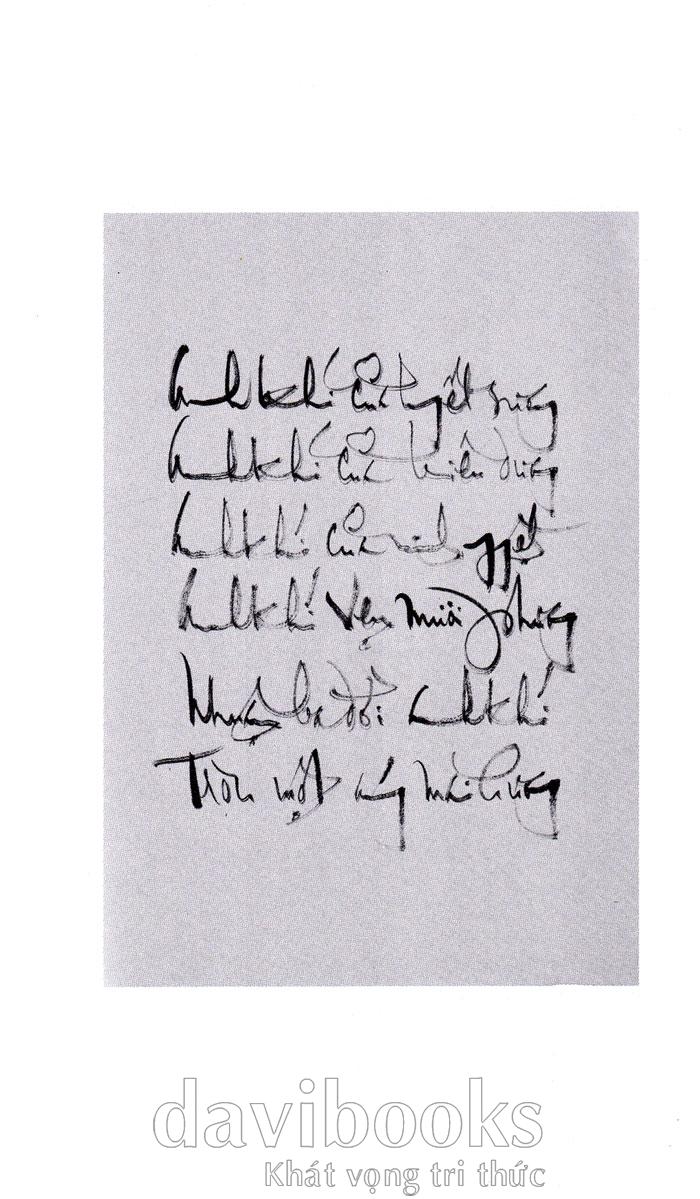 Anh khí của tuyết sương
Anh khí của thiên đường
Anh khí của nguyệt
Anh khí vẹn mười phương
Nhuộm ba đời anh khí
Tròn một áng mái hương
davibooks
Khát vọng tri thức